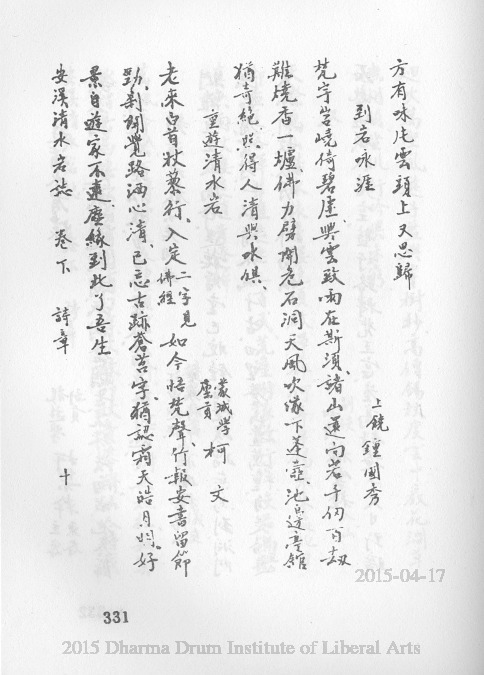 方有味片雲頭上又思歸
到岩咏涯
上饒 鍾國秀
梵宇岧嶢倚碧虛興雲致雨在斯須諸山選向岩千仞百劫
難燒香一爐佛力劈開危石洞天風吹墜下蓬壺池邊亭館
猶奇絕照得人清與水俱
重遊清水岩
蒙城學
歷貢 柯文
老來白首杖藜行入定二字見
佛經如今悟梵聲竹報安書留節
勁荆開覺路洒心清已忘古跡蒼苔字猶認霜天皓月明好
景自遊家不遠塵緣到此了吾生
安溪清水岩誌 卷下 詩章 十
331
2015-04-17
2015 Dharma Drum Institute of Liberal Arts